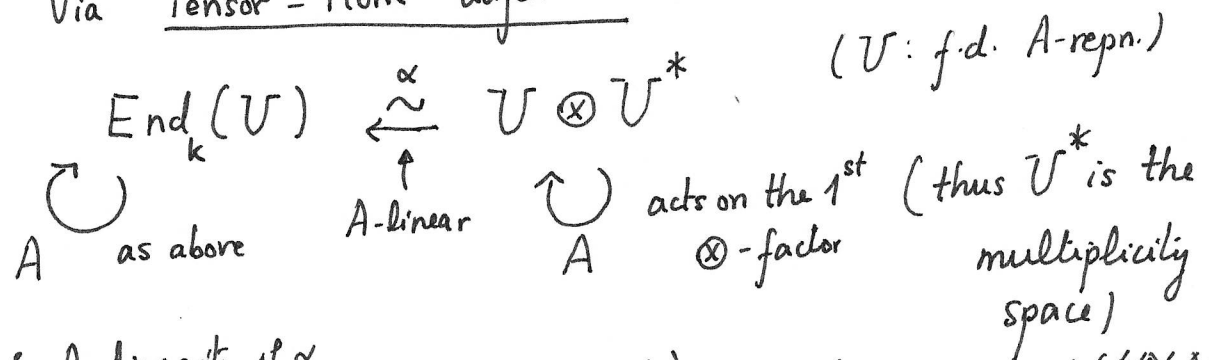 Via Tensor - Hom
(U : f.d. A-repn.)
End_k (U) ←~^α U ⊗ U^*
A as above
A-linear
A acts on the 1^st ⊗-factor
(thus U^* is the multiplicity space)